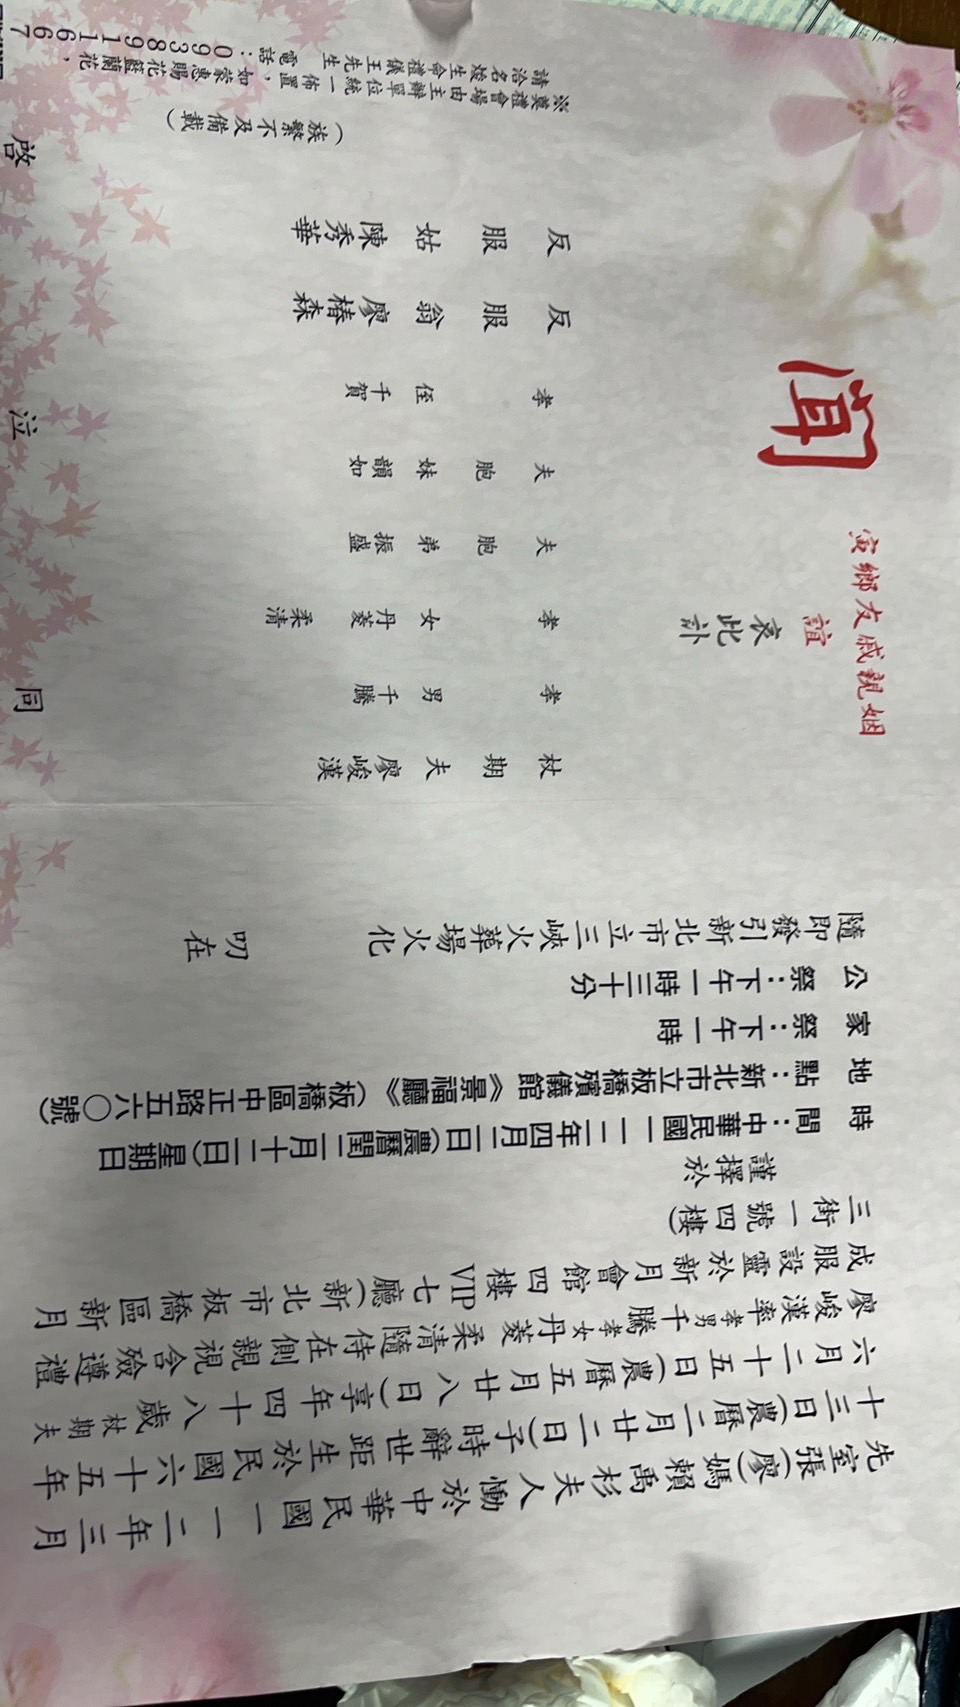 先室張(廖)媽賴禹杉夫人慟於中華民國一一二年三月
十三日(農曆二月廿二日)子時辭世距生於民國六十五年
六月二十五日(農曆五月廿八日)享年四十八歲杖期夫
廖峻漢率孝男千騰孝女丹菱柔清隨侍在側親視含殮遵禮
成服設靈於新月會館四樓VIP七廳(新北市板橋區新月
三街一號四樓)
謹擇於
時間：中華民國一一二年四月二日(農曆閏二月十二日)星期日
地點：新北市立板橋殯儀館《景福廳》(板橋區中正路五六○號)
家祭：下午一時
公祭：下午一時三十分
隨即發引新北市立三峽火葬場火化 叨在
姻親戚友鄉寅
誼
哀此訃
聞
杖期夫 廖峻漢
孝男 千騰
孝女 丹菱 柔清
夫胞弟 振盛
夫胞妹 韻如
孝侄 千賀
反服翁 廖椿森
反服姑 陳秀華
(族繁不及備載)
同泣啓
※奠禮會場由主辦單位統一佈置，如蒙惠賜花籃蘭花，
請洽名煌生命禮儀王先生 電話：0983911667